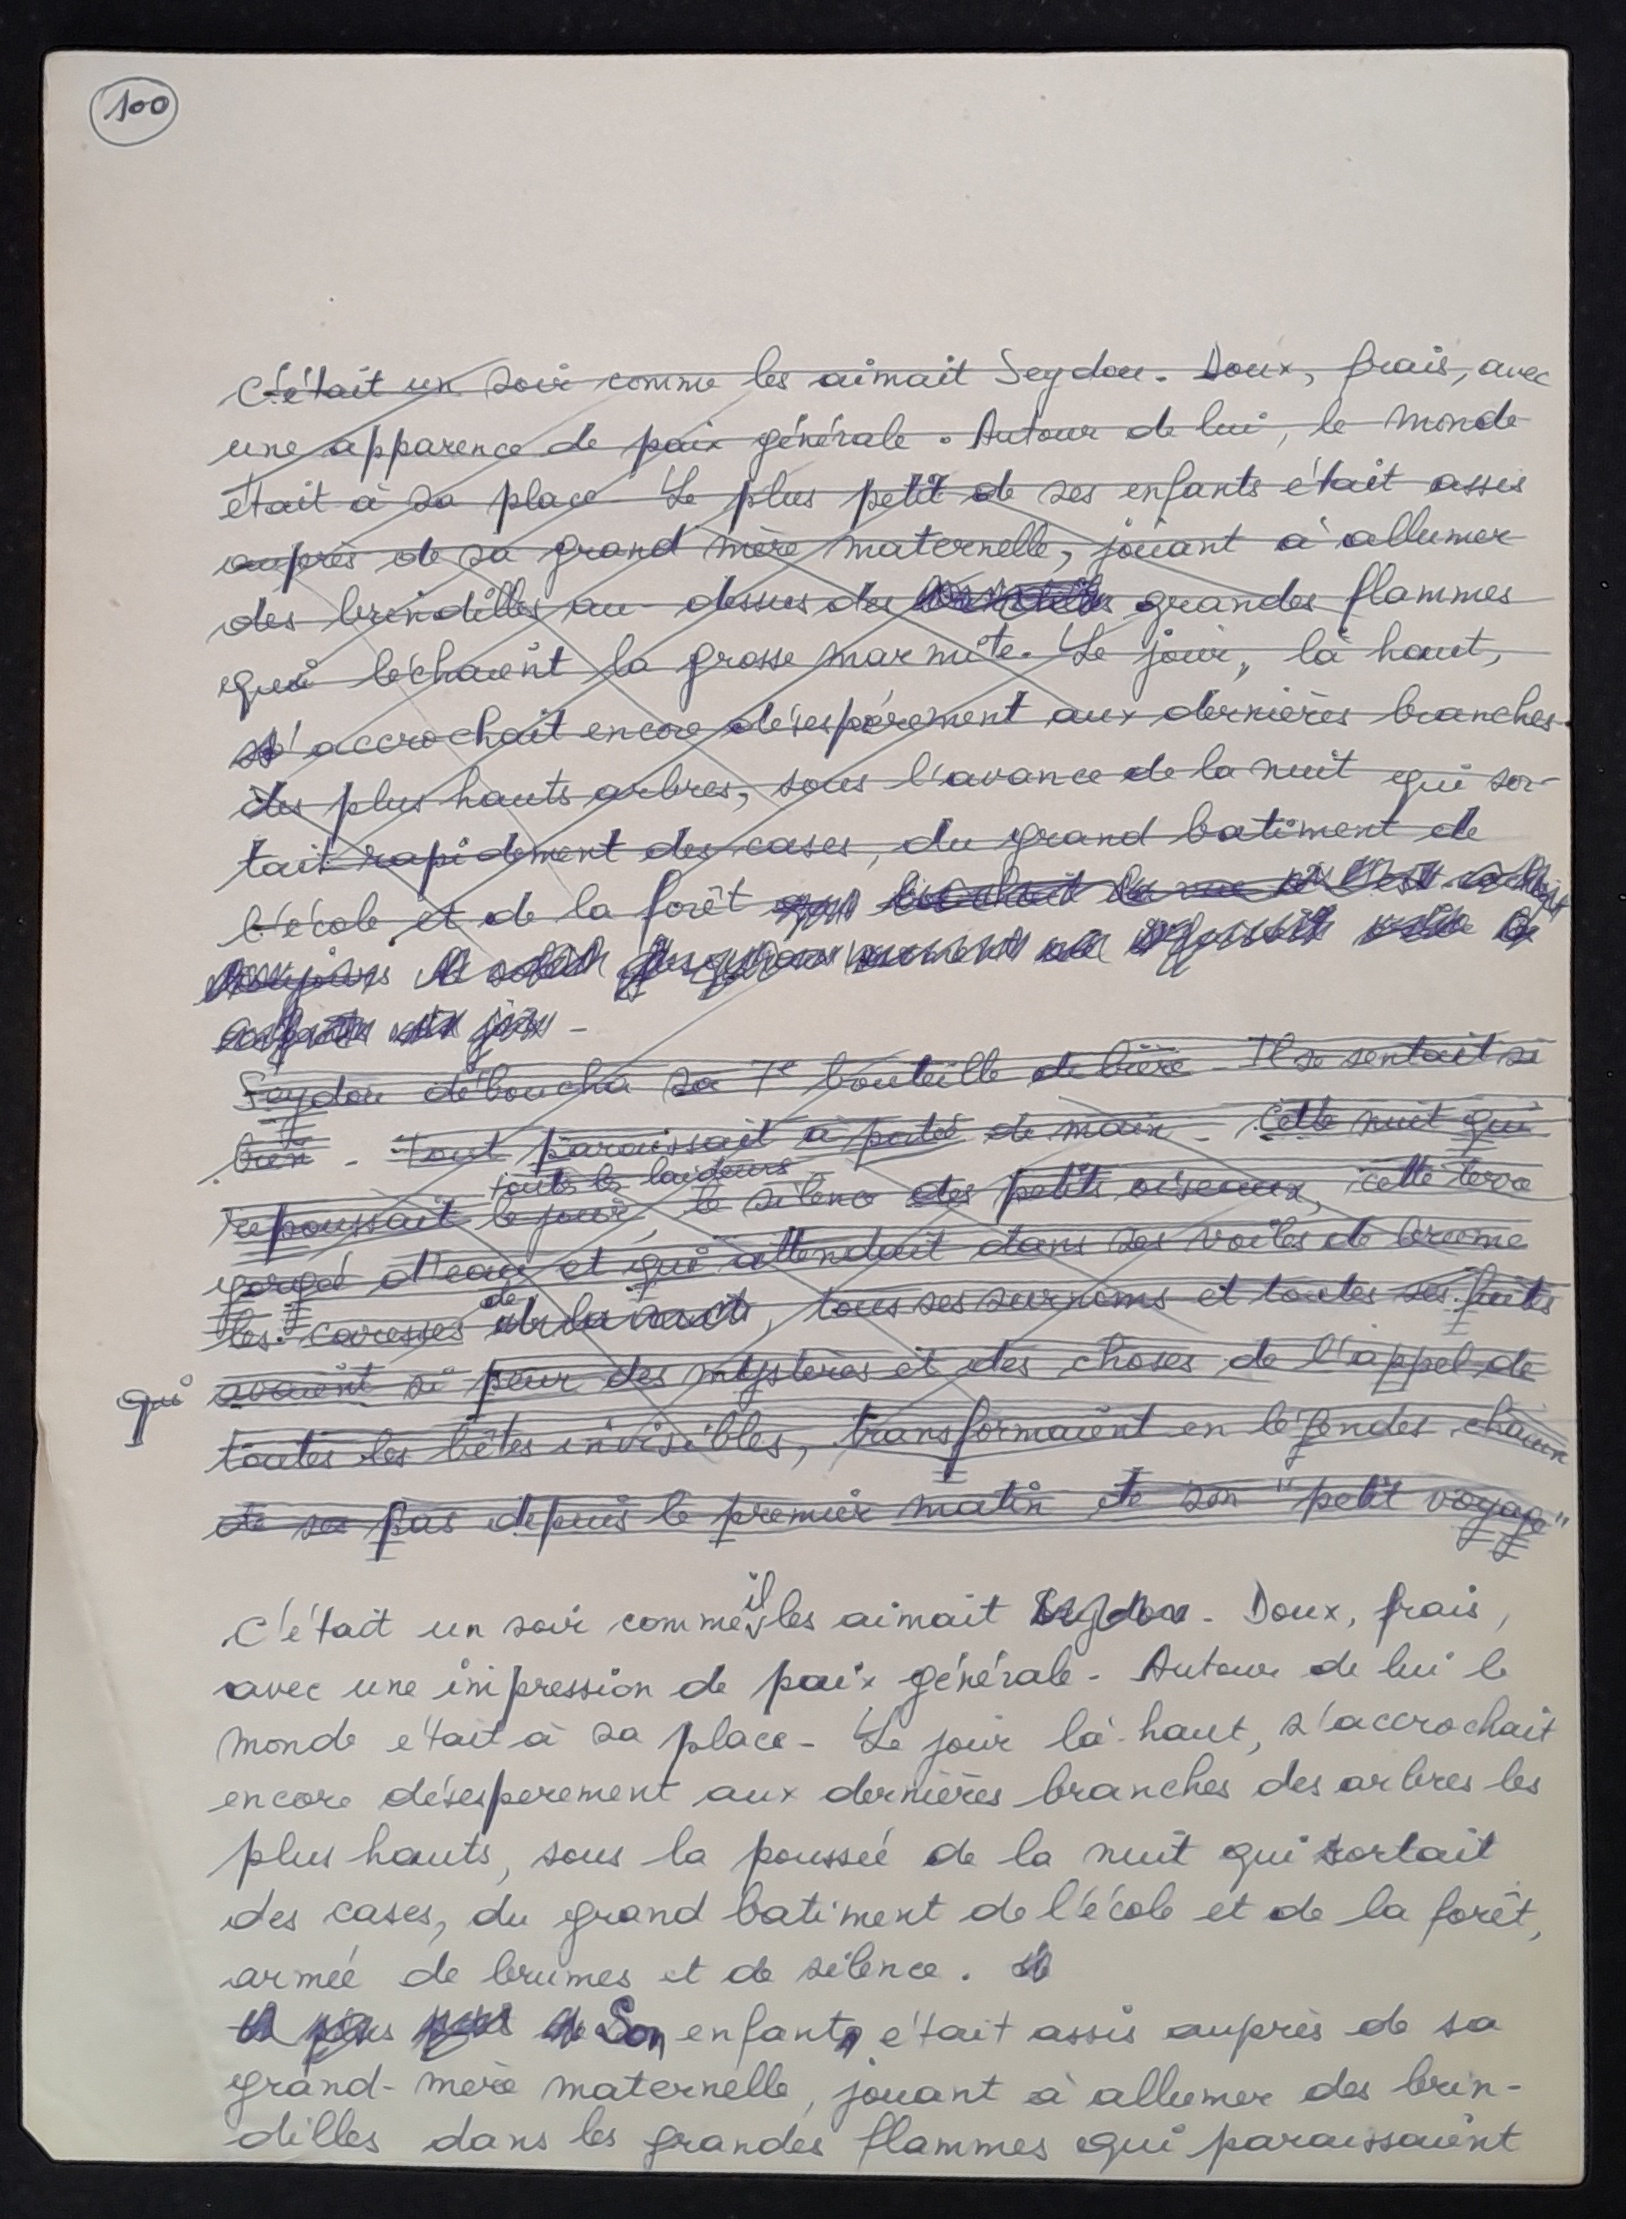 100
C'était un soir comme les aimait Seydou. Doux, frais, avec
une apparence de paix générale. Autour de lui, le monde
était à sa place. Le plus petit de ses enfants était assis
auprès de sa grand mère maternelle, jouant à allumer
des brindilles au-dessus des grandes flammes
qui léchaient la grosse marmite. Le jour, là haut,
s'accrochait encore désespérement aux dernières branches
des plus hauts arbres, sous l'avance de la nuit qui sor-
tait rapidement des cases, du grand batiment de
l'école et de la forêt
Seydou déboucha sa 7e bouteille de bière - Il se sentait si
bien - tout paraissait à portée de main - cette nuit qui
toutes les laideurs
repoussait le jour, le silence des petits oiseaux, cette terre
gorgée d'eau et qui attendait dans ses voiles de brume
les caresses de, tous ses surnoms et toutes ses fuites
qui avaient si peur des mystères et des choses de l'appel de
toutes les bêtes invisibles, transformaient en légendes chacun
de ses pas depuis le premier matin de son "petit voyage"
C'était un soir comme il les aimait Seydou - Doux, frais,
avec une impression de paix générale - Autour de lui le
monde était à sa place - Le jour là-haut, s'accrochait
encore désesperement aux dernières branches des arbres les
plus hauts, sous la poussée de la nuit qui sortait
des cases, du grand batiment de l'école et de la forêt,
armée de brumes et de silence.
Son enfant était assis auprès de sa
grand-mère maternelle, jouant à allumer des brin-
dilles dans les grandes flammes qui paraissaient